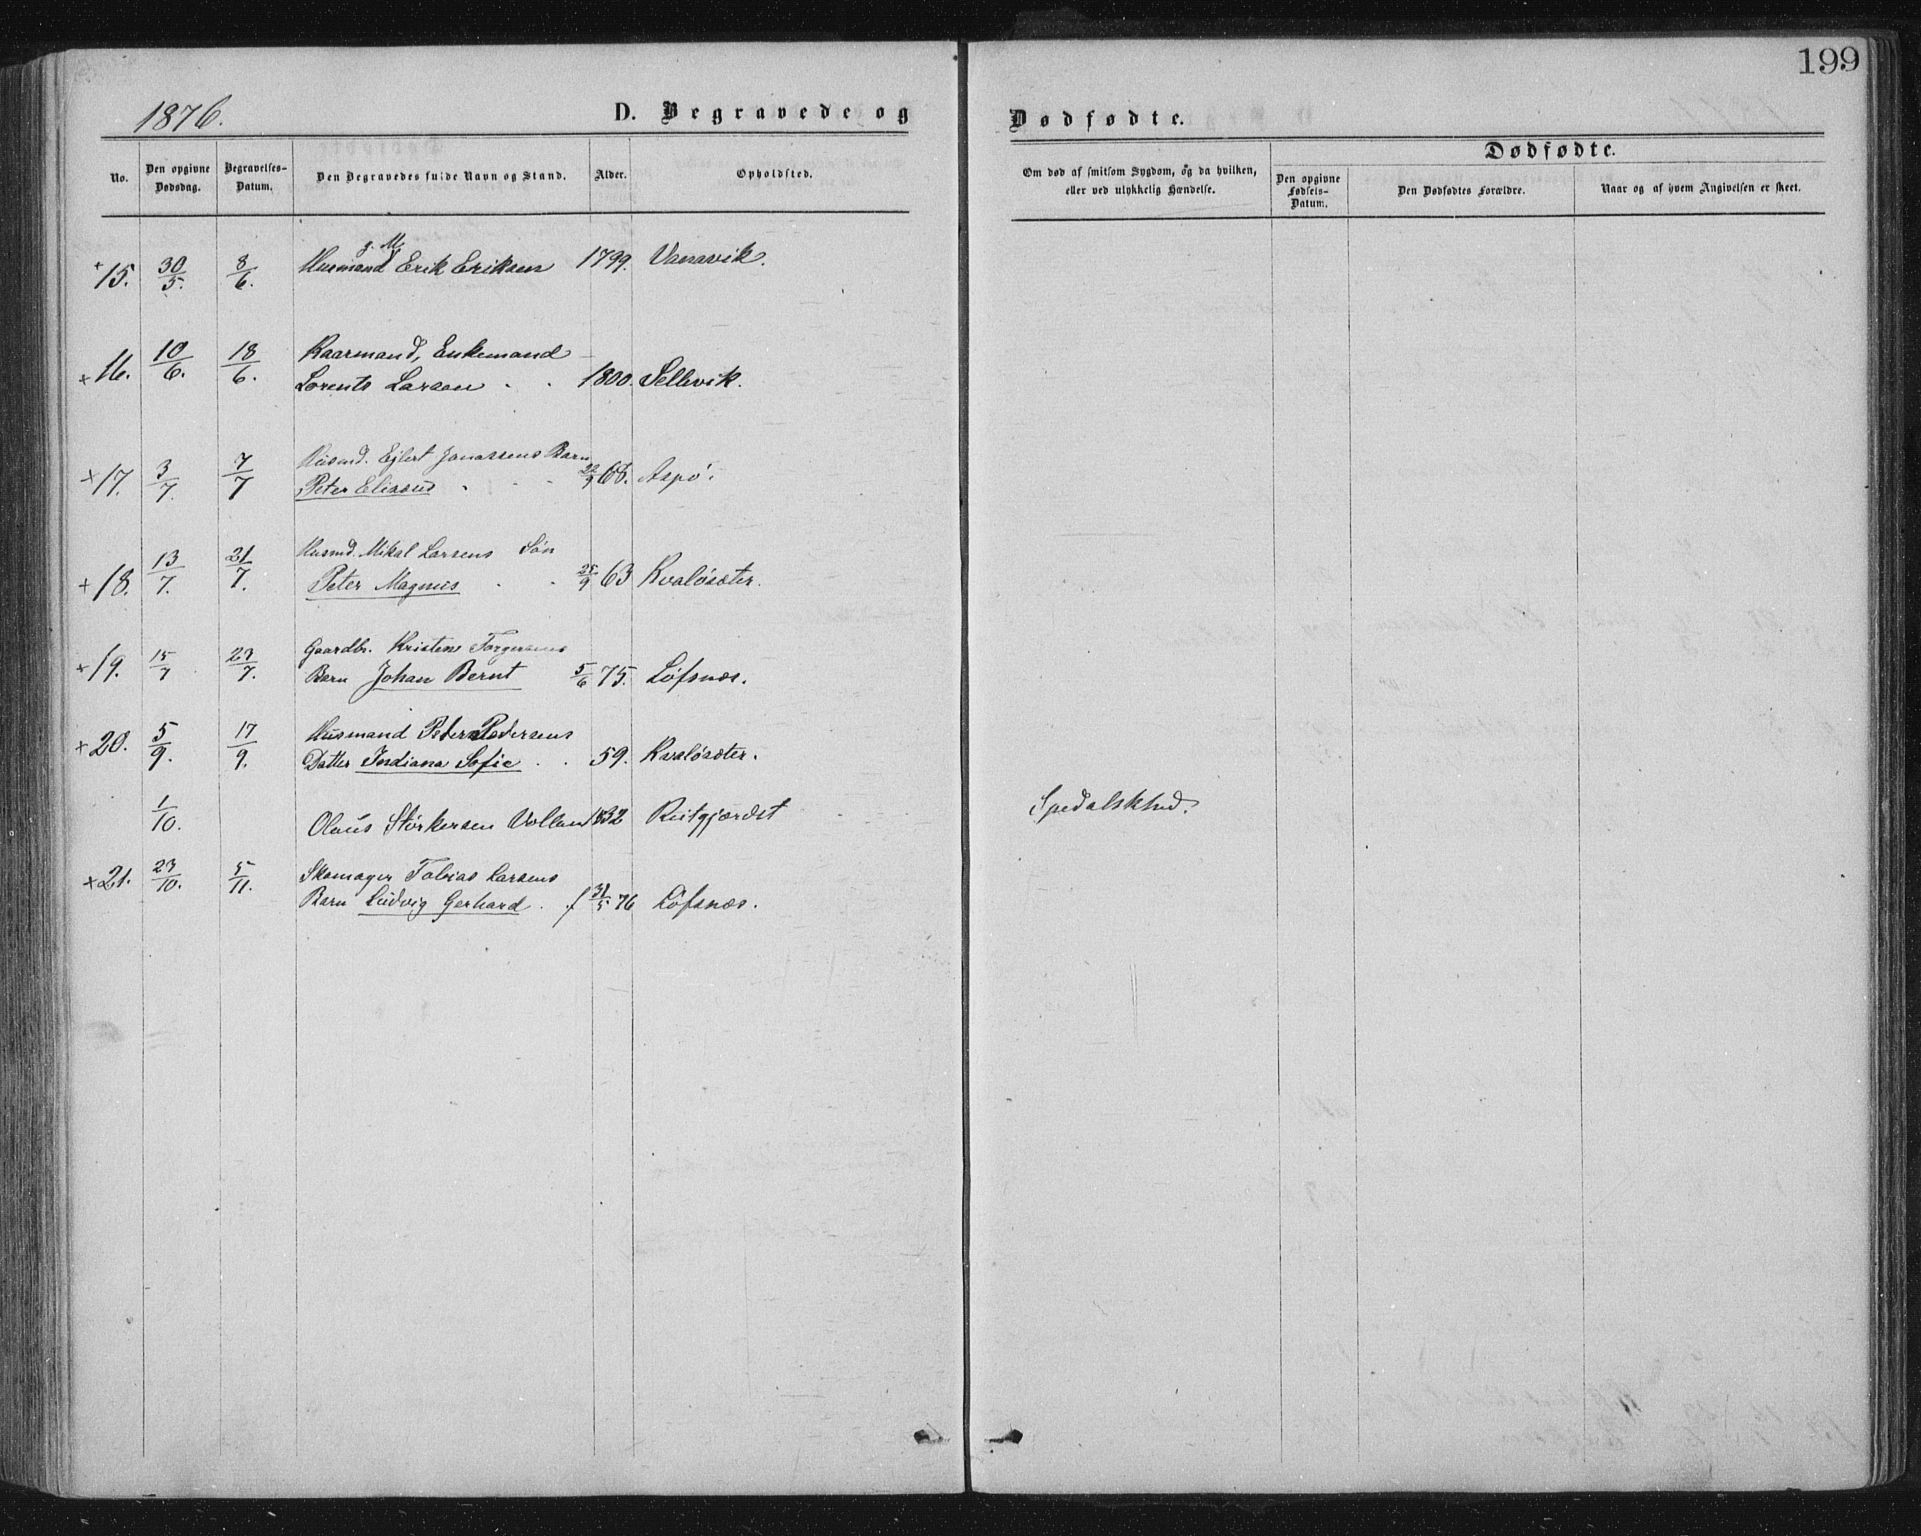 199
1876. D. Begravede og Dødfødte.
No. Den opgivne Dødsdag. Begravelses-Datum. Den Begravedes fulde Navn og Stand. Alder. Opholdsted. Om død af smitsom Sygdom, og da hvilken, eller ved ulykkelig Hændelse. Dødfødte.
Den opgivne Fødsels-Datum. Den Dødfødtes Forældre. Naar og af hvem Angivelsen er skeet.
g. M
+ 15. 30/5. 8/6. Husmand Erik Eriksen 1799. Vanavik.
Kaarmand, Enkemand
+ 16. 10/6. 18/6. Lorents Larsen . . 1800. Sellevik.
Husmd. Ejlert Jonassens Barn
+ 17. 3/7. 7/7 Peter Eliseus . . . 22/9 68. Aspö.
Husmd. Mikal Larsens Søn
+ 18. 13/7. 21/7. Peter Magnus . . 9 63 Kvalösæter.
Gaardbr. Kristene Torgersens
+ 19. 15/7 23/7. Barn Johan Bernt 5/6 75. Löfsnæs.
Husmand Peter Pedersens
+ 20. 5/9. 17/9. Datter Indiana Sofie . . 59. Kvalösæter.
1/10. Olaus Störkersen Vollan 1832 Reitgjærdet Spedalskhed.
Skomager Tobias Larsens
+ 21. 23/10. 5/11. Barn Ludvig Gerhard . f 31/5 76 Löfsnæs.